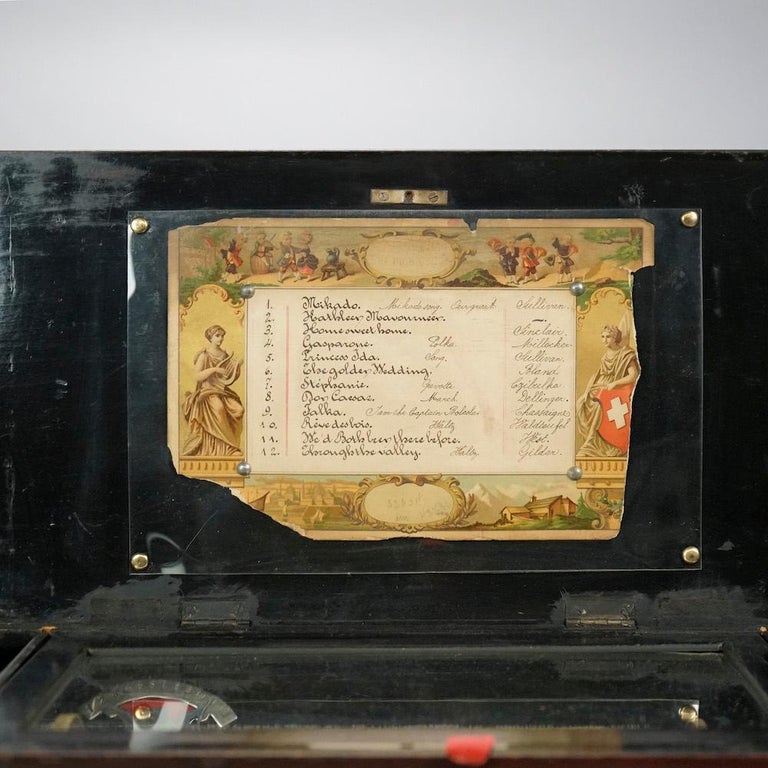 1. Mikado. Mikado song. Our great Sullivan.
2. Kathleer Mavourneer. —
3. Home sweet home. Sinclair.
4. Gasparone. Polka. Millöcker.
5. Princess Ida. Song. Sullivan.
6. The golder Wedding. Roland
7. Stéphanie. Gavotte Czibulka.
8. Dor Caesar. March. Dellinger.
9. Falka. I am the Captain Chassaigne
10. Rêve des lois. Waltz Waldteufel
11. We'd Both beer there before. West.
12. Through the valley. Waltz Gilder.